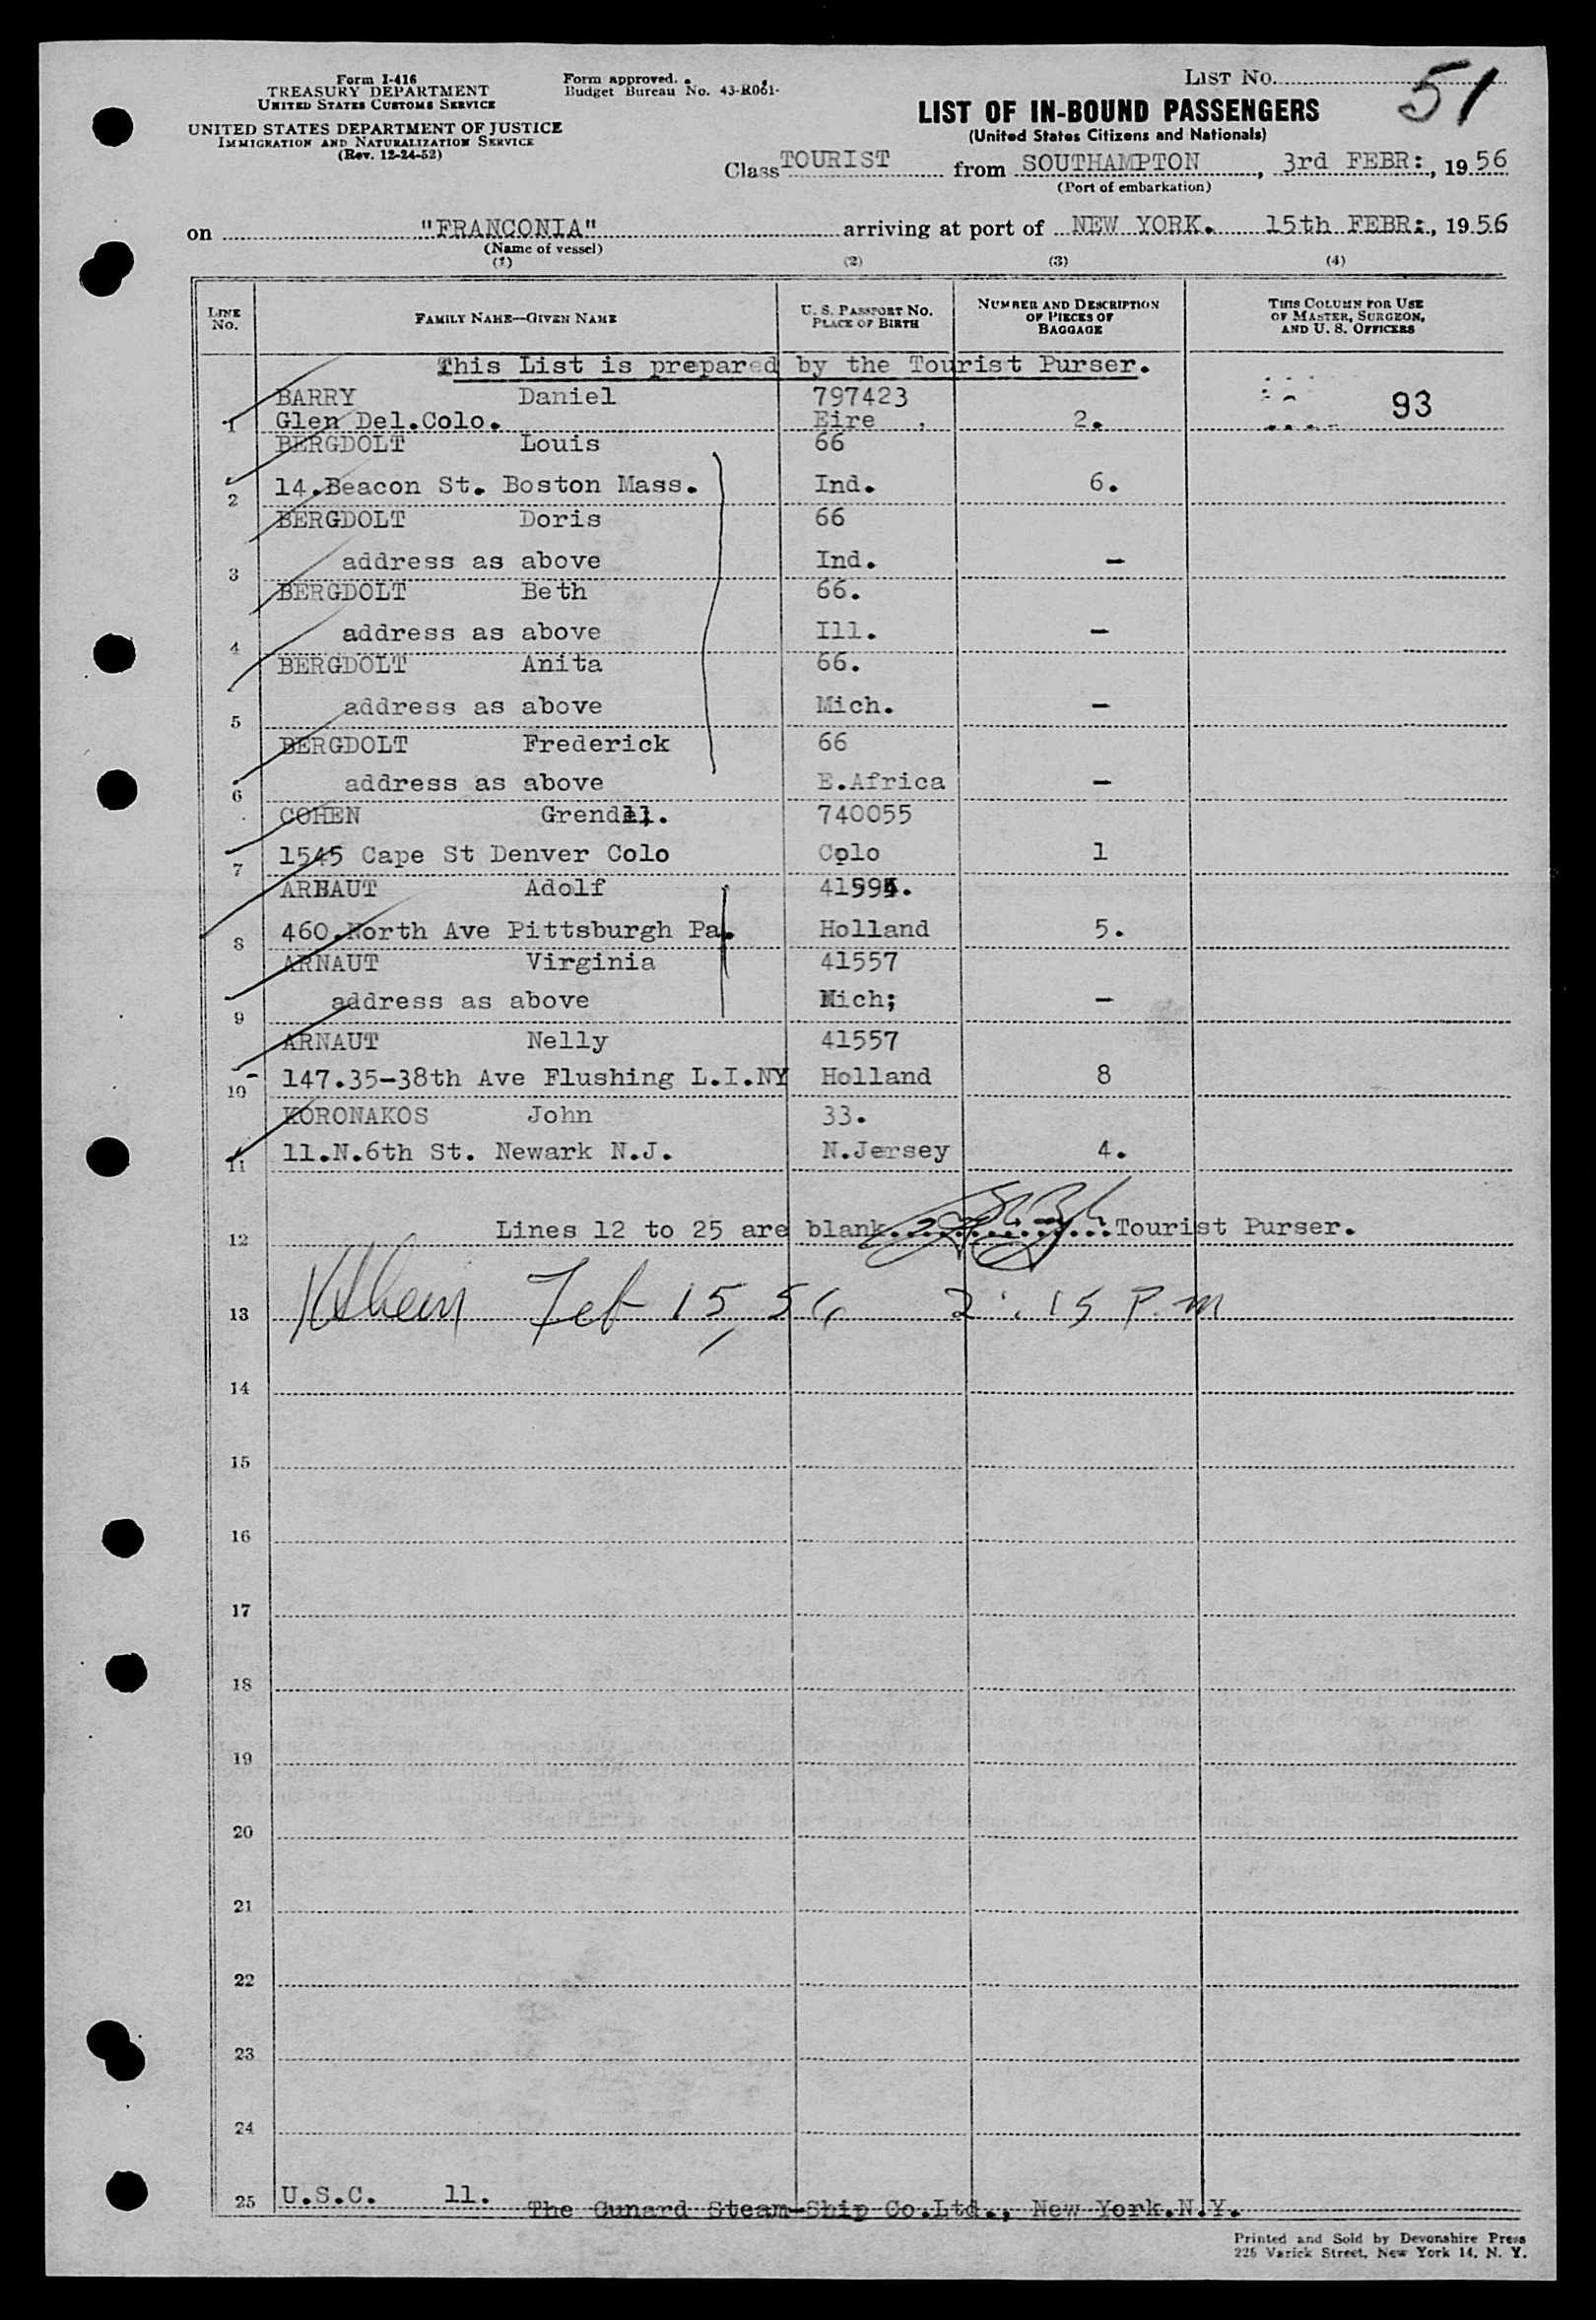 Form I-416
TREASURY DEPARTMENT
UNITED STATES CUSTOMS SERVICE
UNITED STATES DEPARTMENT OF JUSTICE
IMMIGRATION AND NATURALIZATION SERVICE
(Rev. 12-24-52)
Form approved.
Budget Bureau No. 43-R061-
LIST NO. 51
LIST OF IN-BOUND PASSENGERS
(United States Citizens and Nationals)
Class TOURIST from SOUTHAMPTON, 3rd FEBR:, 1956
(Port of embarkation)
on "FRANCONIA" arriving at port of NEW YORK. 15th FEBR:, 1956
(Name of vessel)
(1) (2) (3) (4)
LINE No. FAMILY NAME—GIVEN NAME U. S. PASSPORT NO. PLACE OF BIRTH NUMBER AND DESCRIPTION OF PIECES OF BAGGAGE THIS COLUMN FOR USE OF MASTER, SURGEON, AND U. S. OFFICERS
This List is prepared by the Tourist Purser.
BARRY Daniel 797423 93
1 Glen Del.Colo. Eire 2.
BERGDOLT Louis 66
2 14.Beacon St. Boston Mass. Ind. 6.
BERGDOLT Doris 66
3 address as above Ind. —
BERGDOLT Beth 66.
4 address as above Ill. —
BERGDOLT Anita 66.
5 address as above Mich. —
BERGDOLT Frederick 66
6 address as above E.Africa —
COHEN 740055
7 1545 Cape St Denver Colo Colo 1
Adolf
8 460.North Ave Pittsburgh Pa. Holland 5.
ARNAUT Virginia 41557
9 address as above Mich; —
ARNAUT Nelly 41557
10 147.35-38th Ave Flushing L.I.NY Holland 8
KORONAKOS John 33.
11 11.N.6th St. Newark N.J. N.Jersey 4.
12 Lines 12 to 25 are blank Tourist Purser.
13 Feb 15, 56 2:15 P.m
14
15
16
17
18
19
20
21
22
23
24
25 U.S.C. 11. The Cunard Steam-Ship Co.Ltd., New York.N.Y.
Printed and Sold by Devonshire Press
225 Varick Street, New York 14, N. Y.